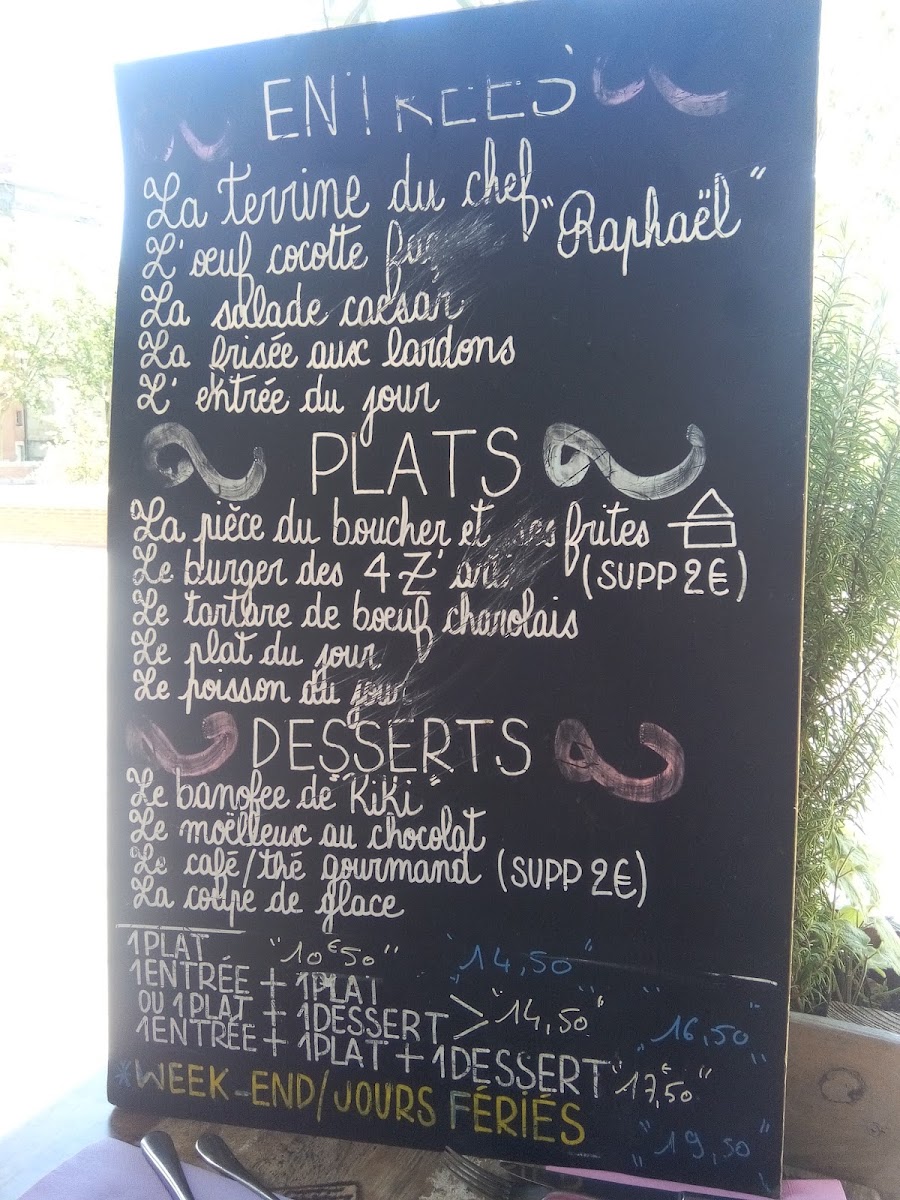 ENTRÉES
La terrine du chef "Raphaël"
L'œuf cocotte
La salade caesar
La frisée aux lardons
L'entrée du jour
PLATS
La pièce du boucher et ses frites
Le burger des 4 Z'arts (SUPP 2€)
Le tartare de bœuf charolais
Le plat du jour
Le poisson du jour
DESSERTS
Le banofee de "KiKi"
Le moëlleux au chocolat
Le café/thé gourmand (SUPP 2€)
La coupe de glace
1PLAT "10€50" "14,50"
1ENTRÉE + 1PLAT
OU 1PLAT + 1DESSERT > "14,50" "16,50"
1ENTRÉE + 1PLAT + 1DESSERT "17,50€"
*WEEK-END/JOURS FÉRIÉS "19,50"